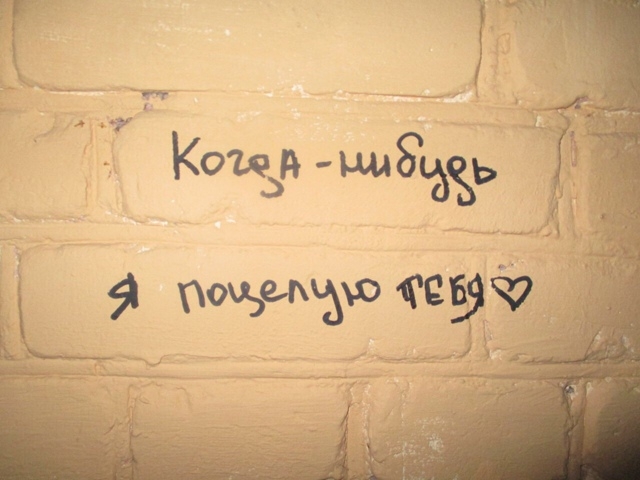 Когда-нибудь
я поцелую ТЕБЯ♡